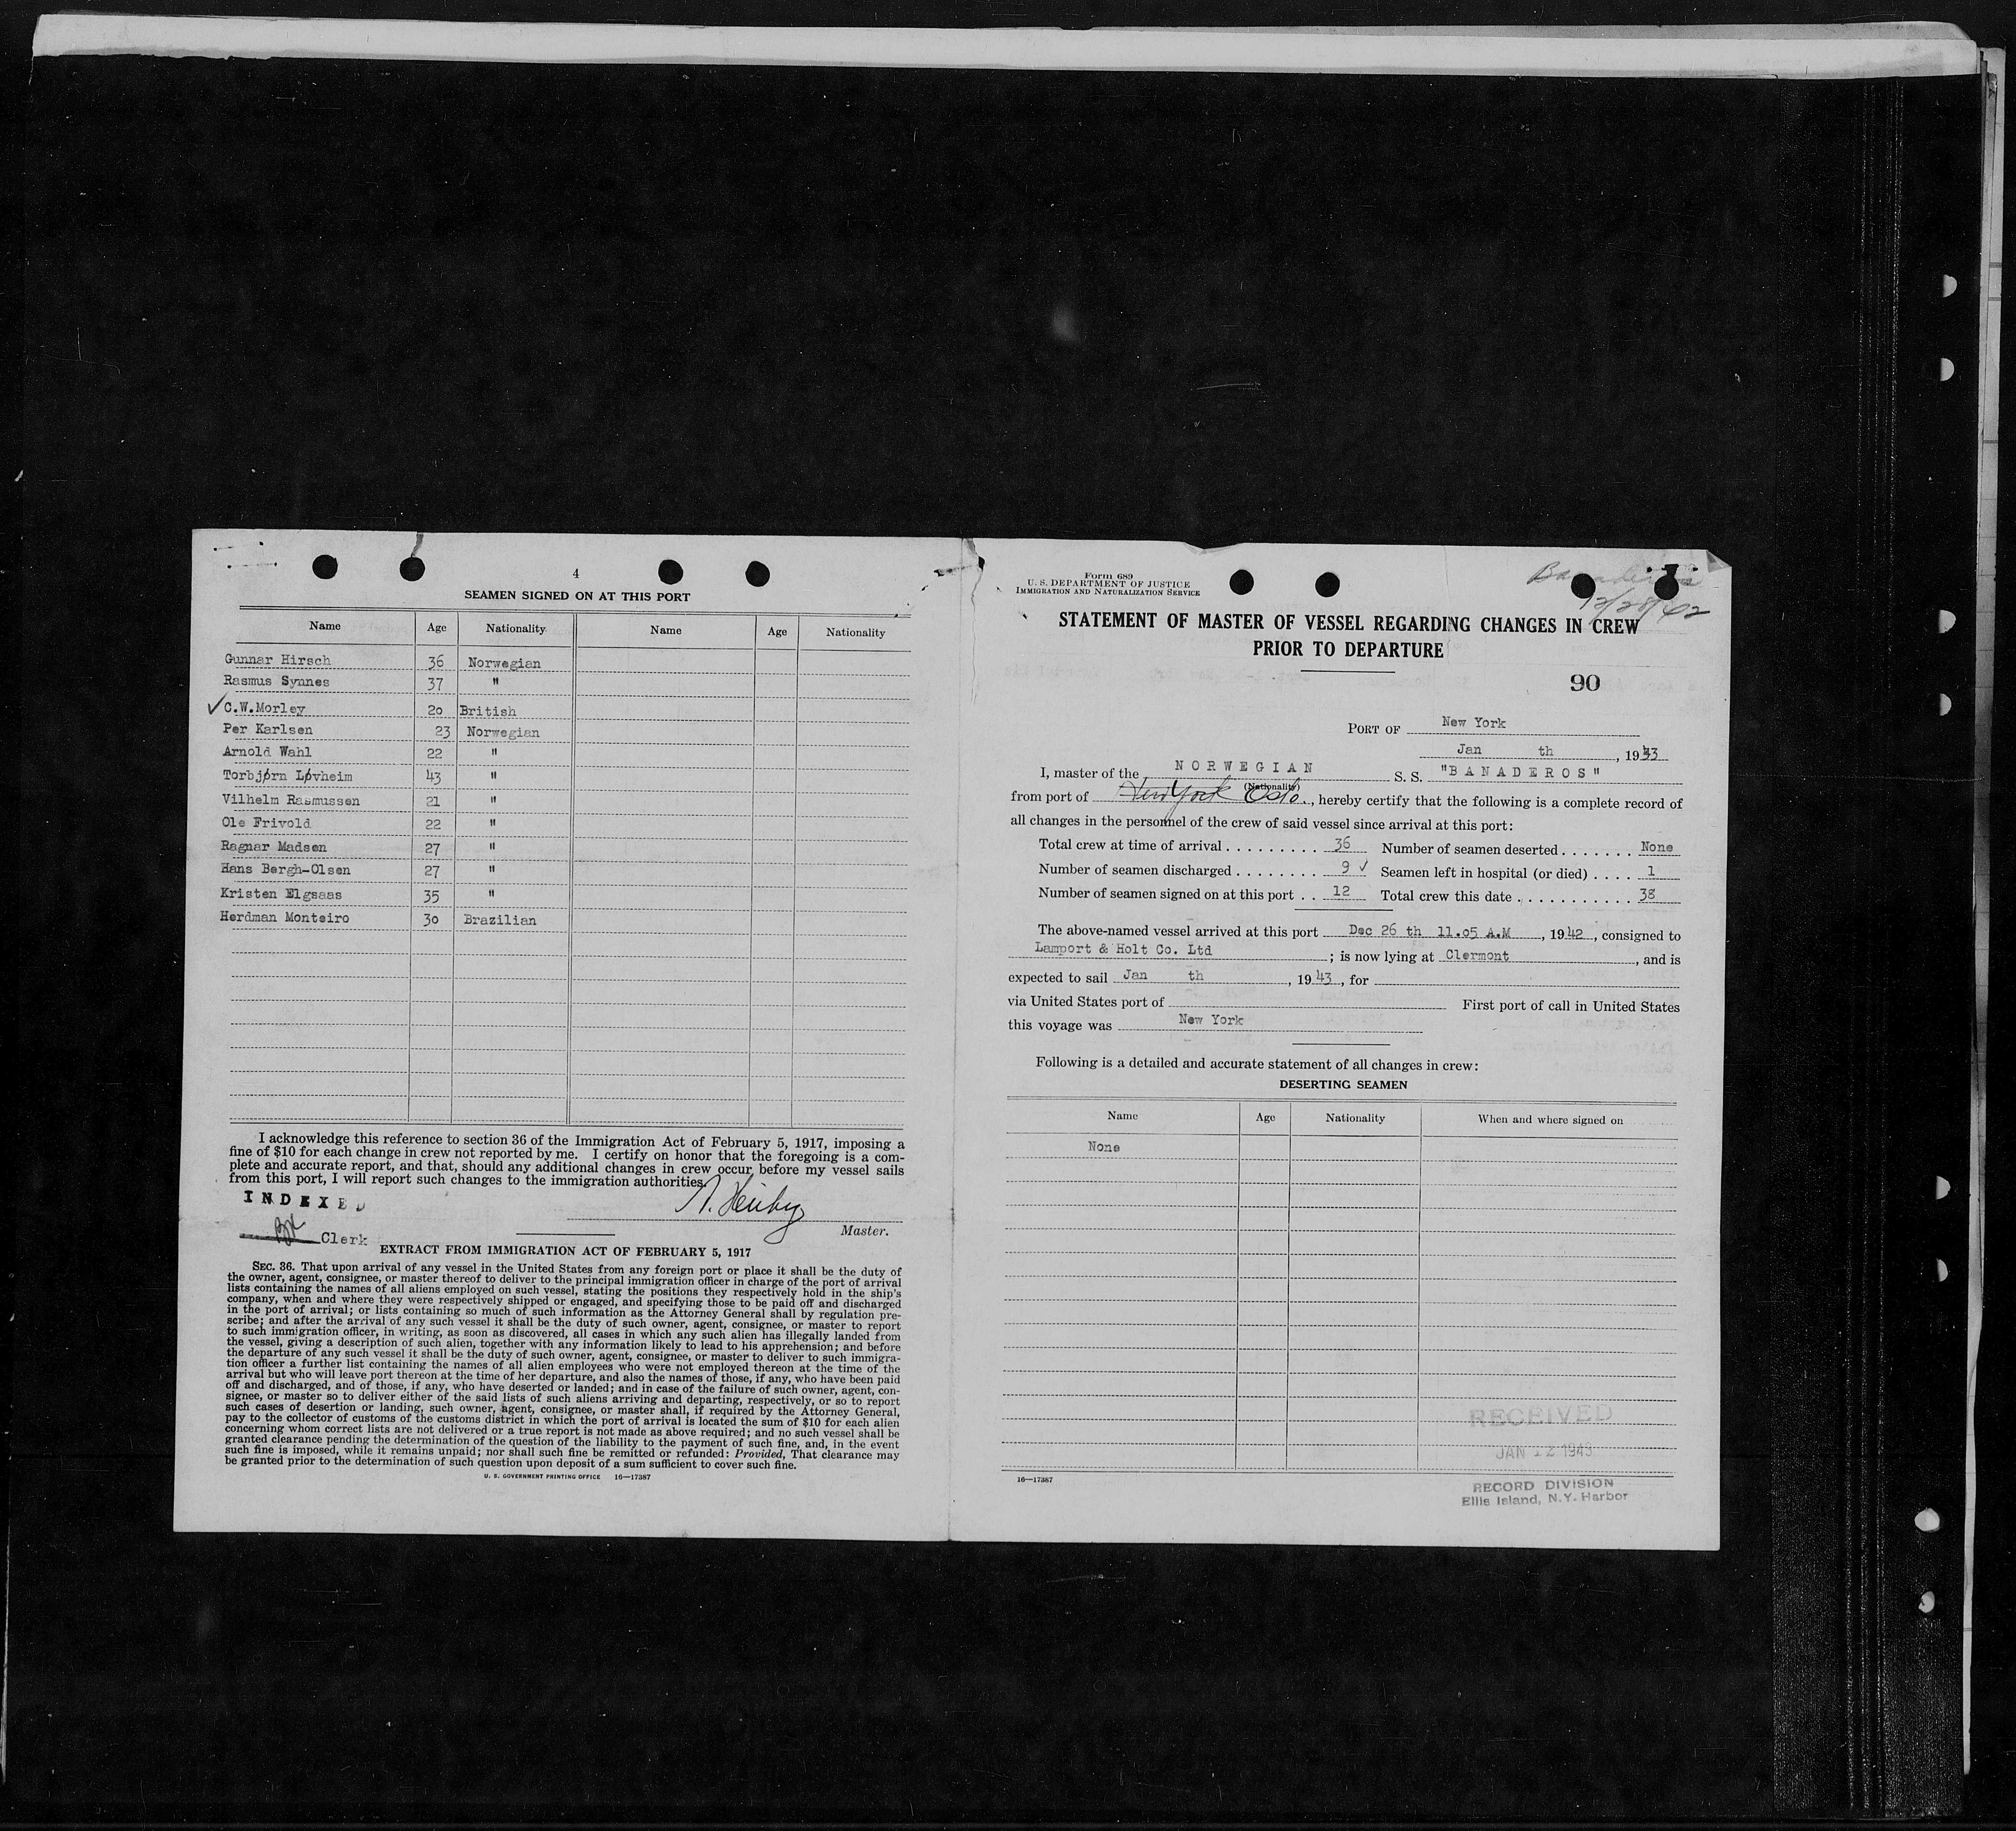 4
SEAMEN SIGNED ON AT THIS PORT
Name Age Nationality Name Age Nationality
Gunnar Hirsch 36 Norwegian
Rasmus Synnes 37 "
✓ C.W.Morley 20 British
Per Karlsen 23 Norwegian
Arnold Wahl 22 "
Torbjørn Løvheim 43 "
Vilhelm Rasmussen 21 "
Ole Frivold 22 "
Ragnar Madsen 27 "
Hans Bergh-Olsen 27 "
Kristen Elgsaas 35 "
Herdman Monteiro 30 Brazilian
I acknowledge this reference to section 36 of the Immigration Act of February 5, 1917, imposing a
fine of $10 for each change in crew not reported by me. I certify on honor that the foregoing is a com-
plete and accurate report, and that, should any additional changes in crew occur before my vessel sails
from this port, I will report such changes to the immigration authorities.
INDEXED
Clerk
Master.
EXTRACT FROM IMMIGRATION ACT OF FEBRUARY 5, 1917
SEC. 36. That upon arrival of any vessel in the United States from any foreign port or place it shall be the duty of
the owner, agent, consignee, or master thereof to deliver to the principal immigration officer in charge of the port of arrival
lists containing the names of all aliens employed on such vessel, stating the positions they respectively hold in the ship's
company, when and where they were respectively shipped or engaged, and specifying those to be paid off and discharged
in the port of arrival; or lists containing so much of such information as the Attorney General shall by regulation pre-
scribe; and after the arrival of any such vessel it shall be the duty of such owner, agent, consignee, or master to report
to such immigration officer, in writing, as soon as discovered, all cases in which any such alien has illegally landed from
the vessel, giving a description of such alien, together with any information likely to lead to his apprehension; and before
the departure of any such vessel it shall be the duty of such owner, agent, consignee, or master to deliver to such immigra-
tion officer a further list containing the names of all alien employees who were not employed thereon at the time of the
arrival but who will leave port thereon at the time of her departure, and also the names of those, if any, who have been paid
off and discharged, and of those, if any, who have deserted or landed; and in case of the failure of such owner, agent, con-
signee, or master so to deliver either of the said lists of such aliens arriving and departing, respectively, or so to report
such cases of desertion or landing, such owner, agent, consignee, or master shall, if required by the Attorney General,
pay to the collector of customs of the customs district in which the port of arrival is located the sum of $10 for each alien
concerning whom correct lists are not delivered or a true report is not made as above required; and no such vessel shall be
granted clearance pending the determination of the question of the liability to the payment of such fine, and, in the event
such fine is imposed, while it remains unpaid; nor shall such fine be remitted or refunded: Provided, That clearance may
be granted prior to the determination of such question upon deposit of a sum sufficient to cover such fine.
U. S. GOVERNMENT PRINTING OFFICE 16—17387
Form 689
U. S. DEPARTMENT OF JUSTICE
IMMIGRATION AND NATURALIZATION SERVICE
Banaderos
12/28/42
STATEMENT OF MASTER OF VESSEL REGARDING CHANGES IN CREW
PRIOR TO DEPARTURE
90
PORT OF New York
Jan th , 1943
I, master of the NORWEGIAN S. S. "BANADEROS"
(Nationality)
from port of New York Oslo, hereby certify that the following is a complete record of
all changes in the personnel of the crew of said vessel since arrival at this port:
Total crew at time of arrival . . . . . . . . . 36 Number of seamen deserted . . . . . . . None
Number of seamen discharged . . . . . . . . 9 ✓ Seamen left in hospital (or died) . . . . 1
Number of seamen signed on at this port . . 12 Total crew this date . . . . . . . . . . . 38
The above-named vessel arrived at this port Dec 26 th 11.05 A.M , 1942, consigned to
Lamport & Holt Co. Ltd ; is now lying at Clermont , and is
expected to sail Jan th , 1943, for
via United States port of First port of call in United States
this voyage was New York
Following is a detailed and accurate statement of all changes in crew:
DESERTING SEAMEN
Name Age Nationality When and where signed on
None
RECEIVED
JAN 12 1943
16—17387
RECORD DIVISION
Ellis Island, N.Y. Harbor